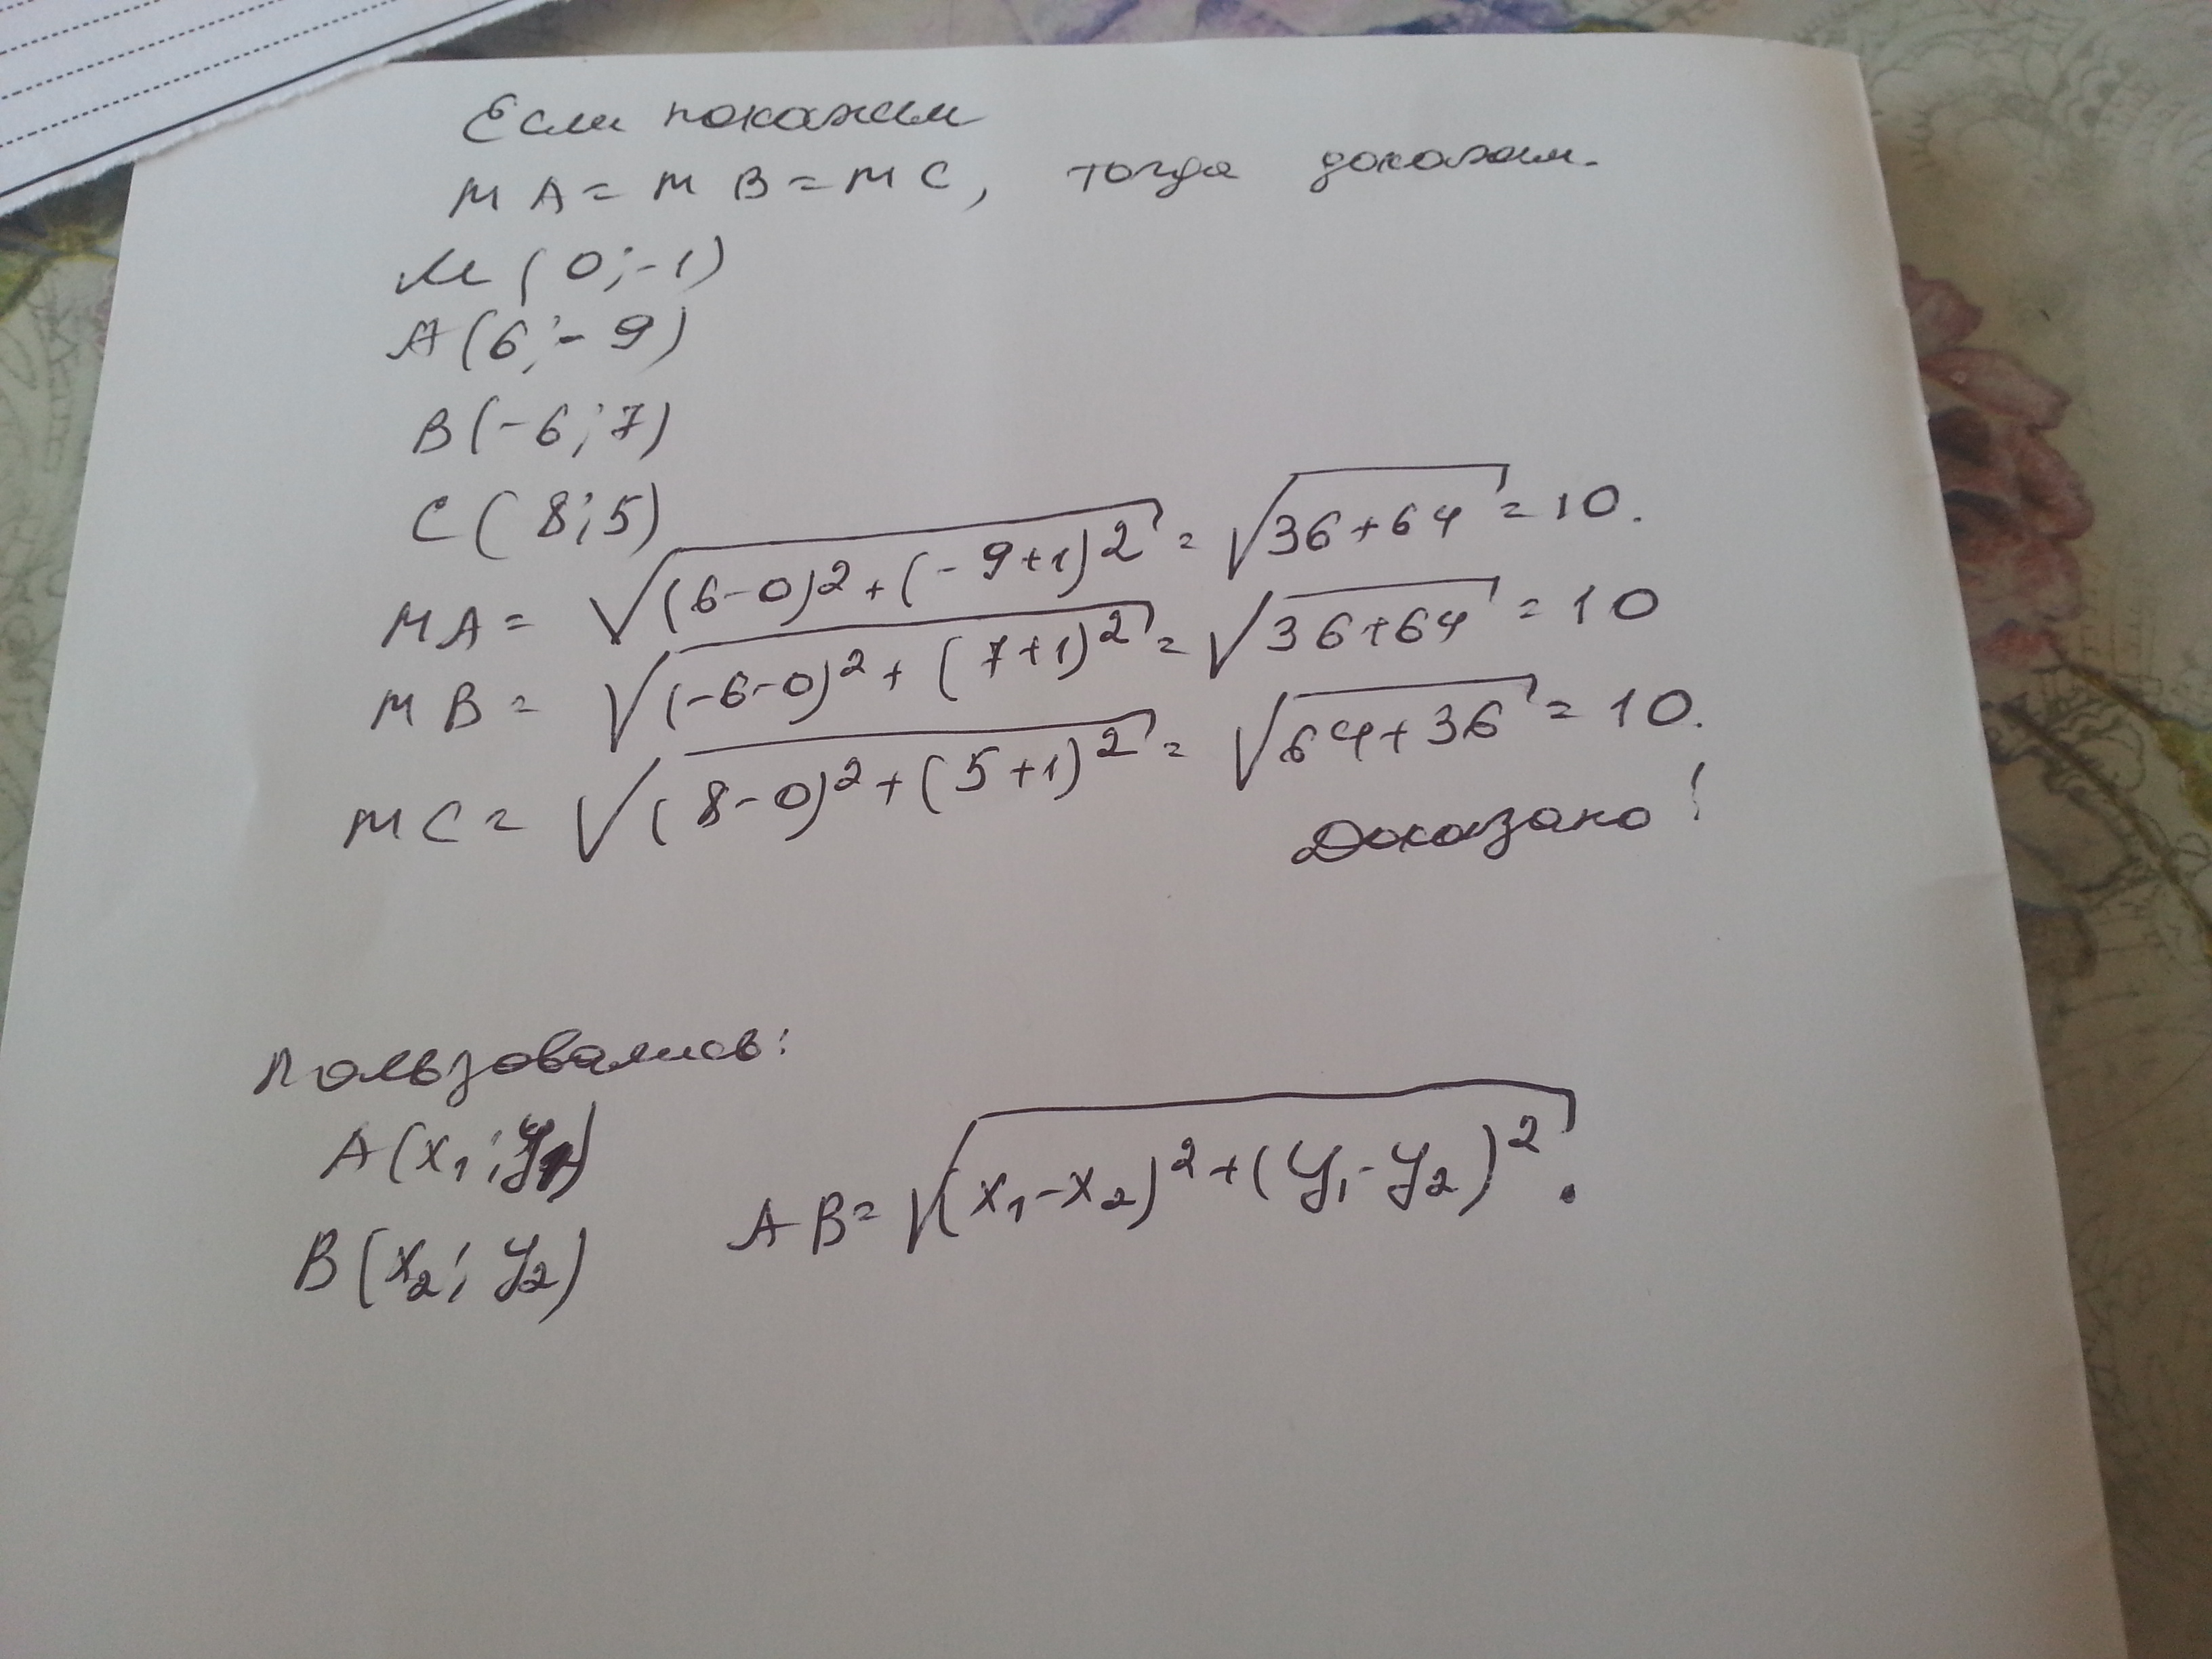 Если покажем
MA = MB = MC, тогда докажем.
M(0;-1)
A(6;-9)
B(-6;7)
C(8;5)
MA = √((6-0)²+(-9+1)²) = √(36+64) = 10.
MB = √((-6-0)²+(7+1)²) = √(36+64) = 10
MC = √((8-0)²+(5+1)²) = √(64+36) = 10.
Доказано!
Пользовались:
A(x₁;y₁)
B(x₂;y₂) AB = √((x₁-x₂)²+(y₁-y₂)²).